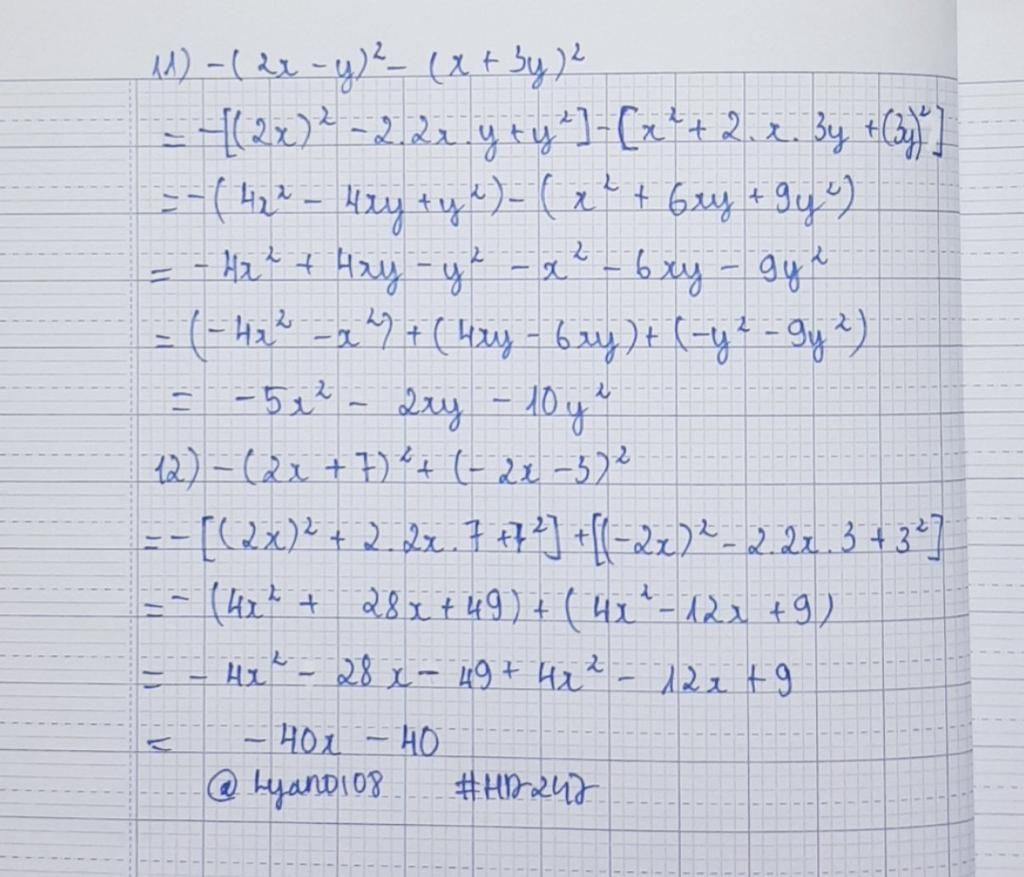 11) -(2x - y)² - (x + 3y)²
= -[(2x)² - 2.2x.y + y²] - [x² + 2.x.3y + (3y)²]
= -(4x² - 4xy + y²) - (x² + 6xy + 9y²)
= -4x² + 4xy - y² - x² - 6xy - 9y²
= (-4x² - x²) + (4xy - 6xy) + (-y² - 9y²)
= -5x² - 2xy - 10y²
12) -(2x + 7)² + (-2x - 3)²
= -[(2x)² + 2.2x.7 + 7²] + [(-2x)² - 2.2x.3 + 3²]
= -(4x² + 28x + 49) + (4x² - 12x + 9)
= -4x² - 28x - 49 + 4x² - 12x + 9
= -40x - 40